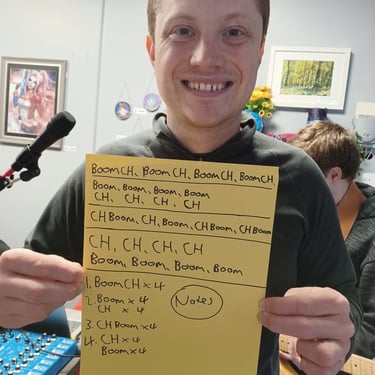 BoomCH, BoomCH, BoomCH, BoomCH,
Boom, Boom, Boom, Boom
CH, CH, CH, CH
CHBoom, CH, Boom, CHBoom, CHBoom
CH, CH, CH, CH
Boom, Boom, Boom, Boom
1. BoomCH x 4
2. Boom x 4
CH x 4
3. CHBoom x4
4. CH x 4
Boom x 4
Notes